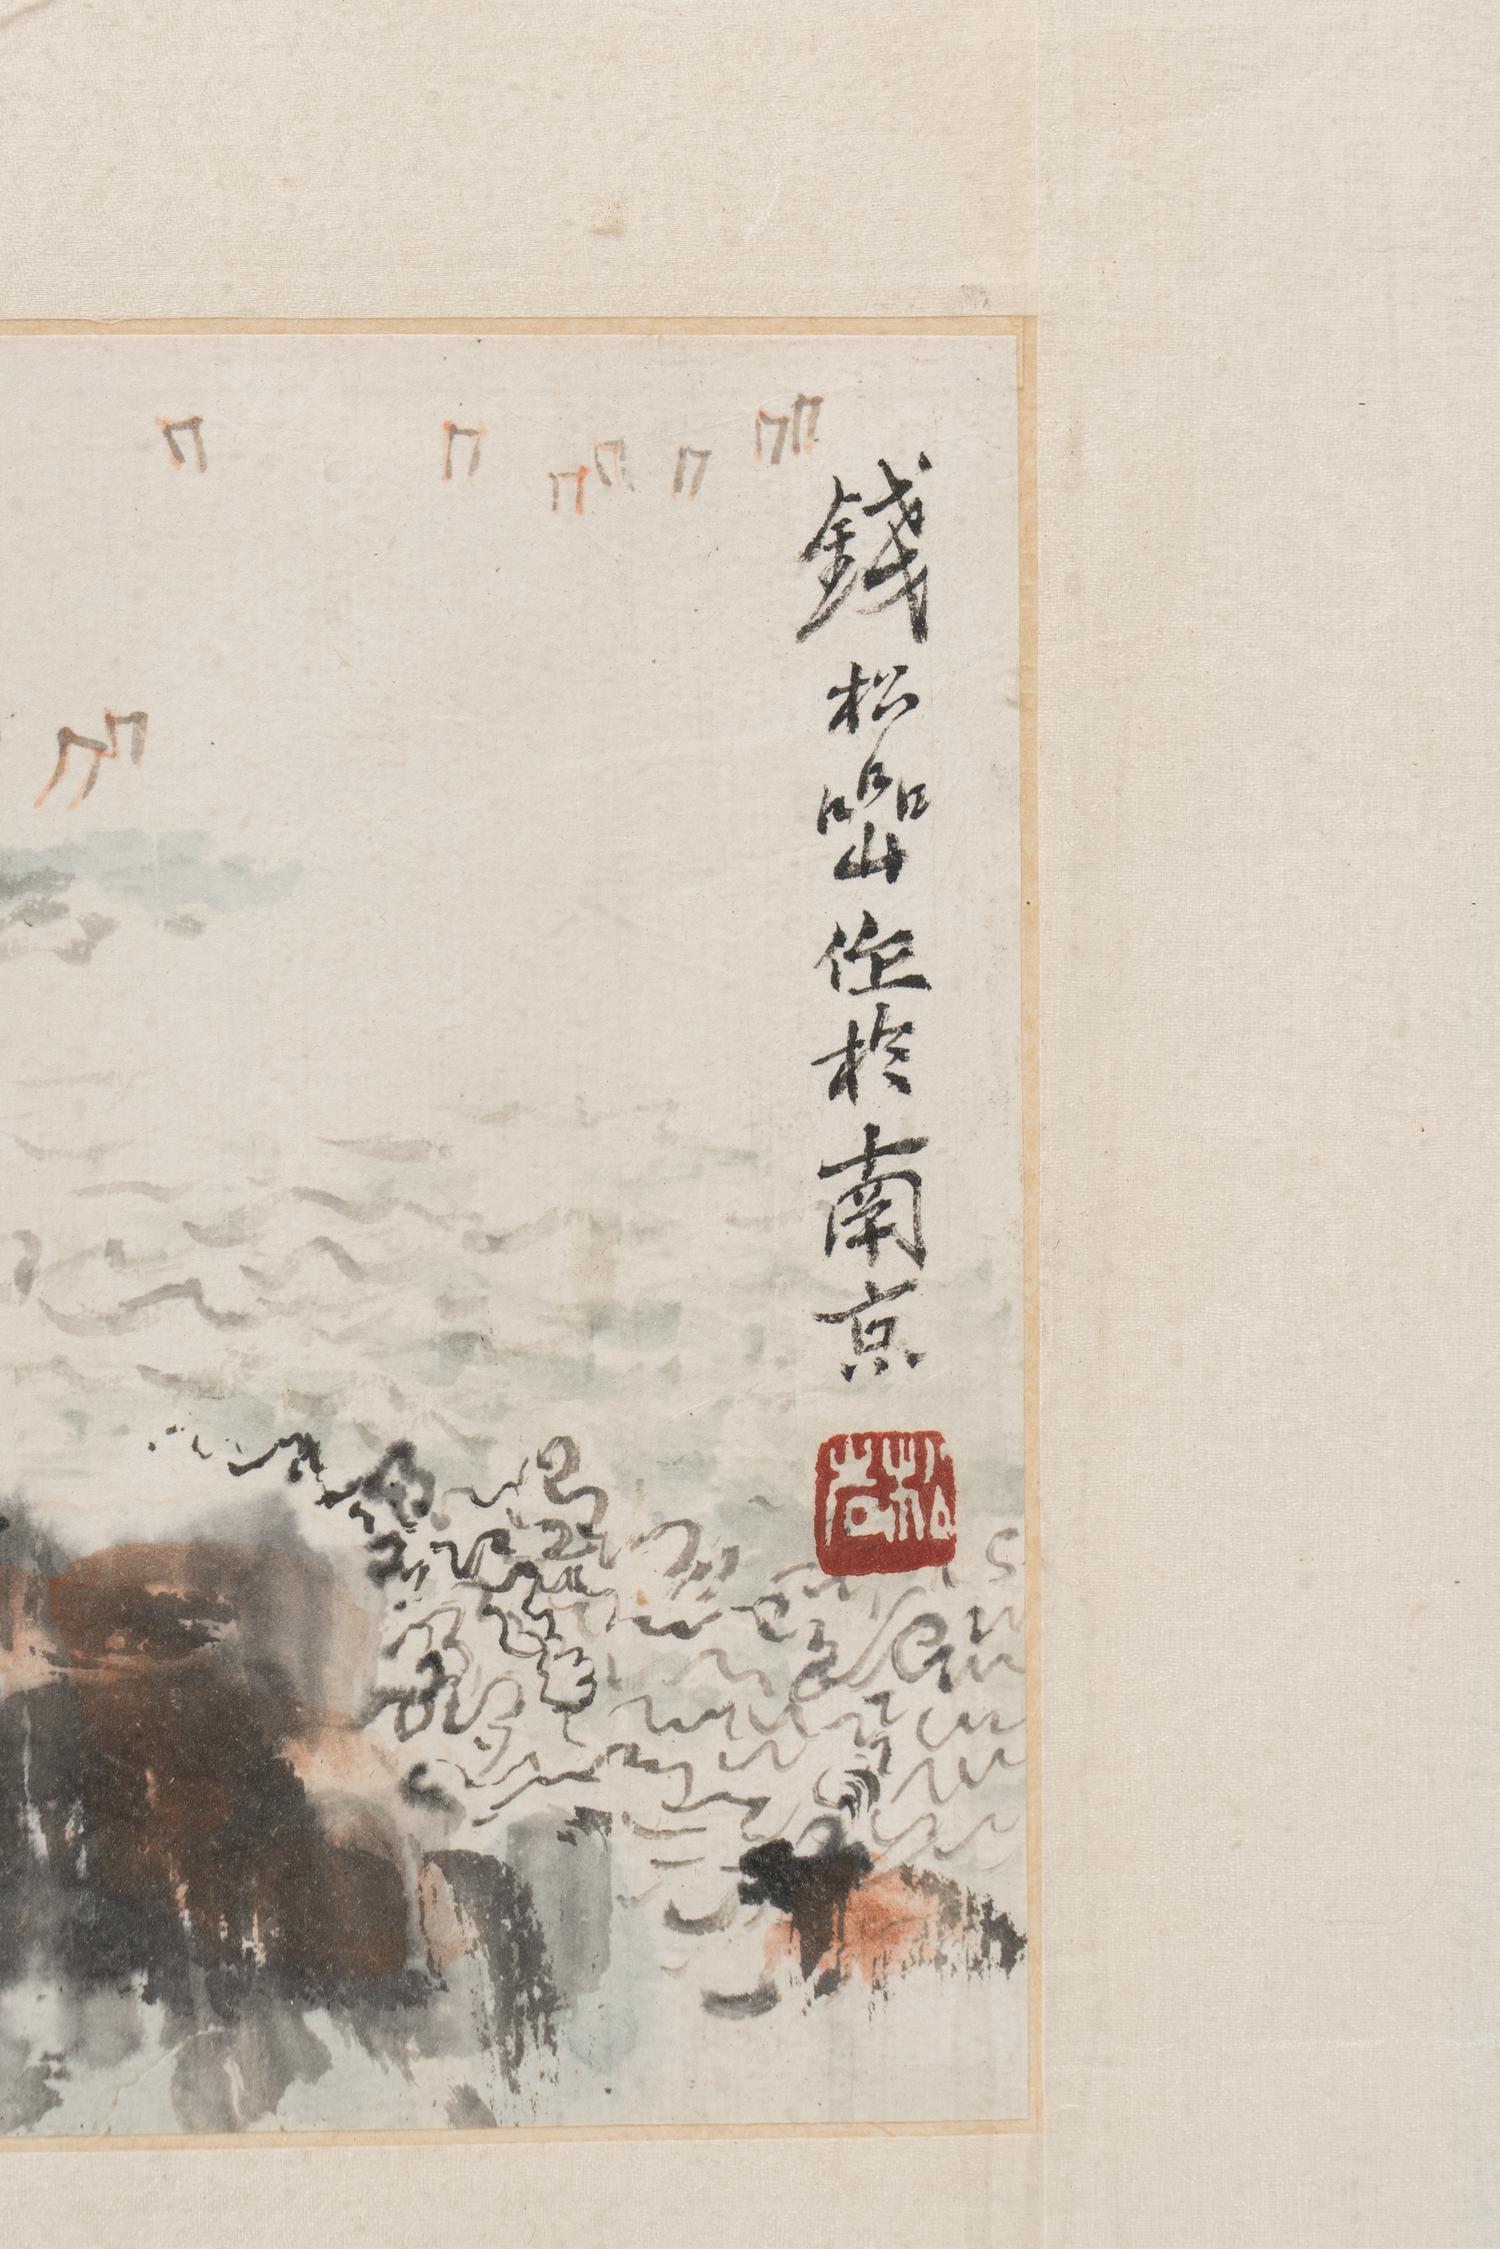 錢松嵒作於南京
松嵒